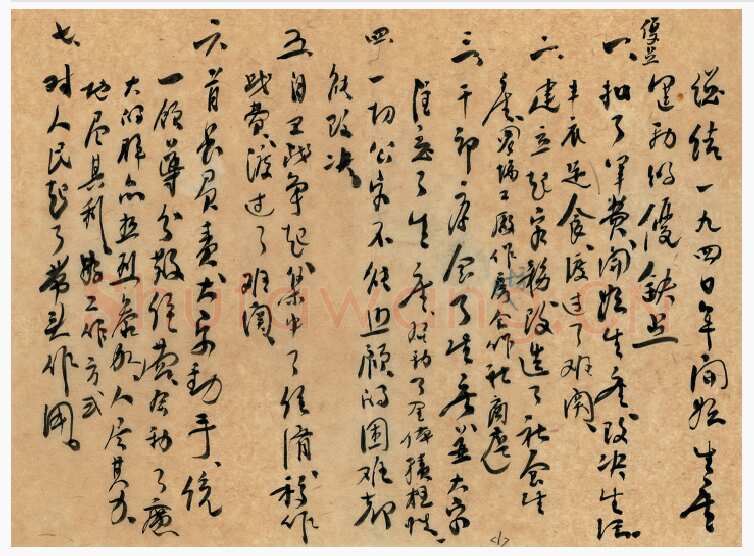 总结一九四〇年开始生产
运动的优缺点
优点
一、扣了军费开始生产改决生活
丰衣足食渡过了难关、
二、建立起家务改造了社会生
产、
工厂作房合作社商店
三、干部亦会了生产并大家
注意了生产推动了全体积极性、
四、一切公家不能迎顾的困难都
能改决
五、自卫战争起集中了经济移作
战费、渡过了难关、
六、首长负责大家动手、统
一领导分散经营、发动了广
大的群众热烈参加、人尽其力、
地尽其利、的工作方式
七、对人民起了带头作用、